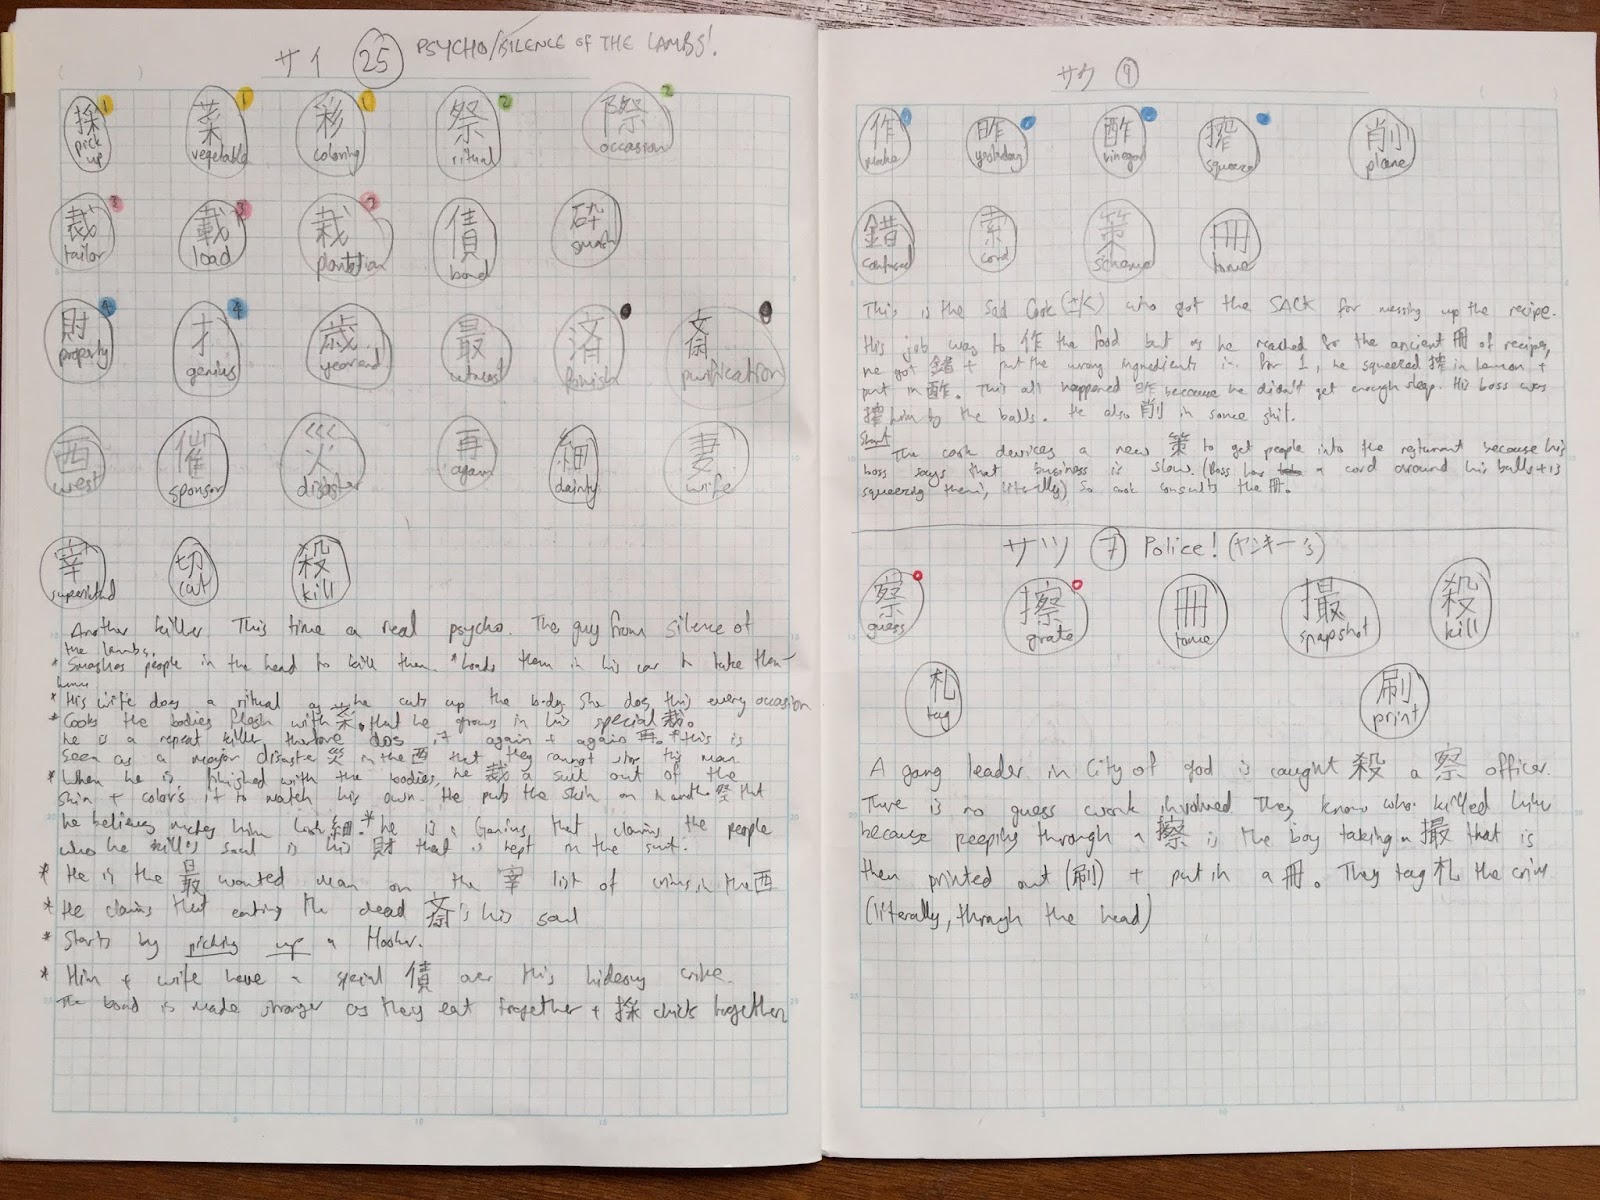 サイ 25 PSYCHO/SILENCE OF THE LAMBS!
採 1 菜 1 彩 1 祭 2 際 2
pick up vegetable coloring ritual occasion
裁 3 載 3 栽 3 債 砕
tailor load plantation bond smash
財 4 才 4 歳 最 済 斎
property genius yearend utmost finish purification
西 催 災 再 細 妻
west sponsor disaster again dainty wife
宰 切 殺
superintend cut kill
Another killer. This time a real psycho. The guy from silence of
the lambs.
* Smashes people in the head to kill them. * Loads them in his car to take them
home
* His wife does a ritual as he cuts up the body. She does this every occasion
* Cooks the bodies flesh with 菜 that he grows in his special 栽。
he is a repeat killer therefore does it again + again 再。 * this is
seen as a major disaster 災 in the 西 that they cannot stop this man
* When he is finished with the bodies, he 裁 a suit out of the
skin + colors it to match his own. He puts the skin on in another 祭 that
he believes makes him look 細. * he is a Genius, that claims the people
who he kills soul is his 財 that is kept in the suit.
* He is the 最 wanted man on the 宰 list of crims in the 西
* He claims that eating the dead 斎's his soul
* Starts by picking up a Hooker.
* Him + wife have a special 債 over this hideous crime.
The bond is made stronger as they eat together + 採 chicks together
サク 9
作 昨 酢 搾 削
make yesterday vinegar squeeze plane
錯 索 策 冊
confused cord scheme tome
This is the Sad Cook (サク) who got the SACK for messing up the recipe.
His job was to 作 the food but as he reached for the ancient 冊 of recipes,
he got 錯 + put the wrong ingredients in. For 1, he squeezed 搾 in lemon +
put in 酢. This all happened 昨 because he didn't get enough sleep. His boss was
搾 him by the balls. He also 削 in some shit.
The cook devices a new 策 to get people into the restaurant because his
boss says that business is slow. (Boss has a cord around his balls + is
squeezing them, literally) So cook consults the 冊。
サツ 7 Police! (ヤンキー's)
察 擦 冊 撮 殺
guess grate tome snapshot kill
札 刷
tag print
A gang leader in City of god is caught 殺 a 察 officer.
There is no guess work involved They know who killed him
because peeping through a 擦 is the boy taking a 撮 that is
then printed out (刷) + put in a 冊。 They tag 札 the crim
(literally, through the head)